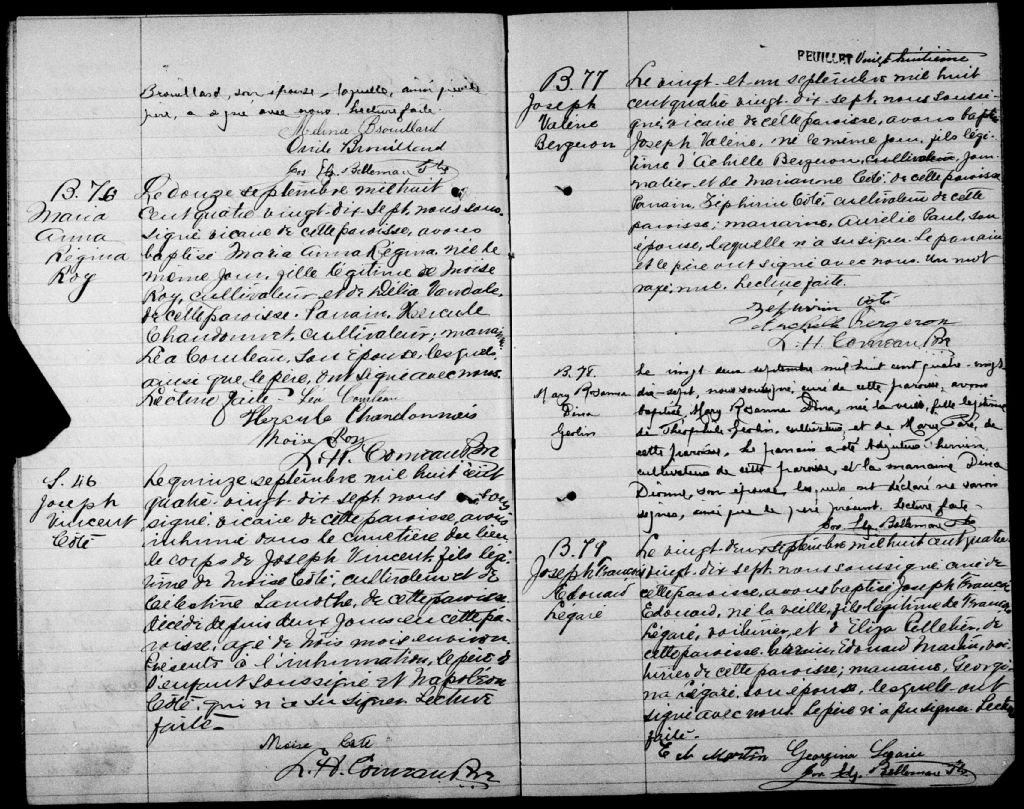 Brouillard, son épouse, laquelle, ainsi que le
père, a signé avec nous. Lecture faite
Melina Brouillard
Ovide Brouillard
Jos Elz. Bellemare Ptre
B. 76
Maria
Anna
Régina
Roy
Le douze septembre mil huit
cent quatre vingt-dix sept, nous sous-
signé vicaire de cette paroisse, avons
baptisé Maria Anna Régina, née le
même jour, fille légitime de Moïse
Roy, cultivateur et de Délia Vandale,
de cette paroisse. Parrain, Hercule
Chandonnet, cultivateur; marraine
Léa Comteau, son épouse, lesquels
ainsi que le père, ont signé avec nous.
Lecture faite - Lea Comteau
Hercule Chandonnais
Moïse Roy
L. H. Comeau Ptre
S. 46
Joseph
Vincent
Côté
Le quinze septembre mil huit cent
quatre-vingt-dix sept, nous sous
signé, vicaire de cette paroisse, avons
inhumé dans le cimetière du lieu
le corps de Joseph Vincent, fils légi-
time de Moïse Côté, cultivateur et de
Célestine Lamothe, de cette paroisse
décédé depuis deux jours en cette pa-
roisse, agé de trois mois environ
Présents à l'inhumation, le père de
l'enfant soussigné et Napoléon
Côté, qui n'a su signer Lecture
faite -
Moïse Coté
L. H. Comeau Ptre
FEUILLET Vingt huitième
B. 77
Joseph
Valère
Bergeron
Le vingt-et-un septembre mil huit
cent quatre vingt-dix sept, nous soussi-
gné, vicaire de cette paroisse, avons baptisé
Joseph Valère, né le même jour, fils légi-
time d'Achille Bergeron, cultivateur, jour-
nalier et de Marianne Coté de cette paroisse
Parrain, Zéphirin Coté, cultivateur de cette
paroisse; marraine, Aurélie Paul, son
épouse, laquelle n'a su signer. Le parrain
et le père ont signé avec nous. Un mot
rayé, nul. Lecture faite.
Zephirin Coté
Archille Bergeron
L. H. Comeau Ptre
B. 78.
Mary Rosanna
Dina
Le vingt deux septembre mil huit cent quatre-vingt
dix-sept, nous soussigné, curé de cette paroisse, avons
baptisé, Mary Rosanna Dina, née la veille, fille légitime
de Théophile, cultivateur, et de Mary Paré, de
cette paroisse. Le parrain a été Adjuteur
cultivateur de cette paroisse, et la marraine Dina
Dionne, son épouse, lesquels ont déclaré ne savoir
signer, ainsi que le père présent. Lecture faite -
Jos. Elz. Bellemare Ptre
B. 79
Joseph François
Edouard
Légaré
Le vingt-deux septembre mil huit cent quatre-
vingt-dix sept, nous soussigné curé de
cette paroisse, avons baptisé Joseph François
Edouard, né la veille, fils légitime de François
Légaré, voiturier, et d'Eliza Pelletier, de
cette paroisse. Parrain, Edouard Martin, voi-
turier de cette paroisse; marraine, Georgi-
na Légaré, son épouse, lesquels ont
signé avec nous. Le père n'a pu signer. Lecture
faite -
E. N. Martin Georgina Legaré
Jos. Elz. Bellemare Ptre